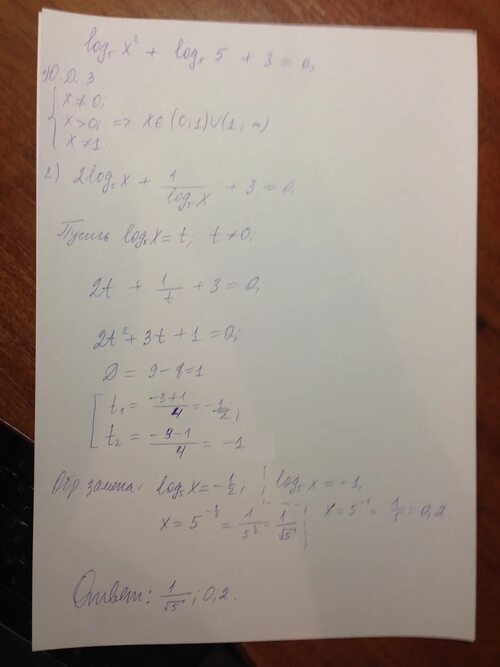 log₅ x² + logₓ 5 + 3 = 0;
1) О.Д.З.
{ x ≠ 0;
x > 0; => x ∈ (0;1)∪(1;∞)
x ≠ 1
2) 2log₅x + 1/log₅x + 3 = 0;
Пусть log₅x = t; t ≠ 0;
2t + 1/t + 3 = 0;
2t² + 3t + 1 = 0;
D = 9 - 8 = 1
[ t₁ = (-3+1)/4 = -1/2;
t₂ = (-3-1)/4 = -1
Обр замена: log₅x = -1/2; log₅x = -1;
x = 5^(-1/2) = 1/5^(1/2) = 1/√5; x = 5^(-1) = 1/5 = 0,2
Ответ: 1/√5; 0,2.